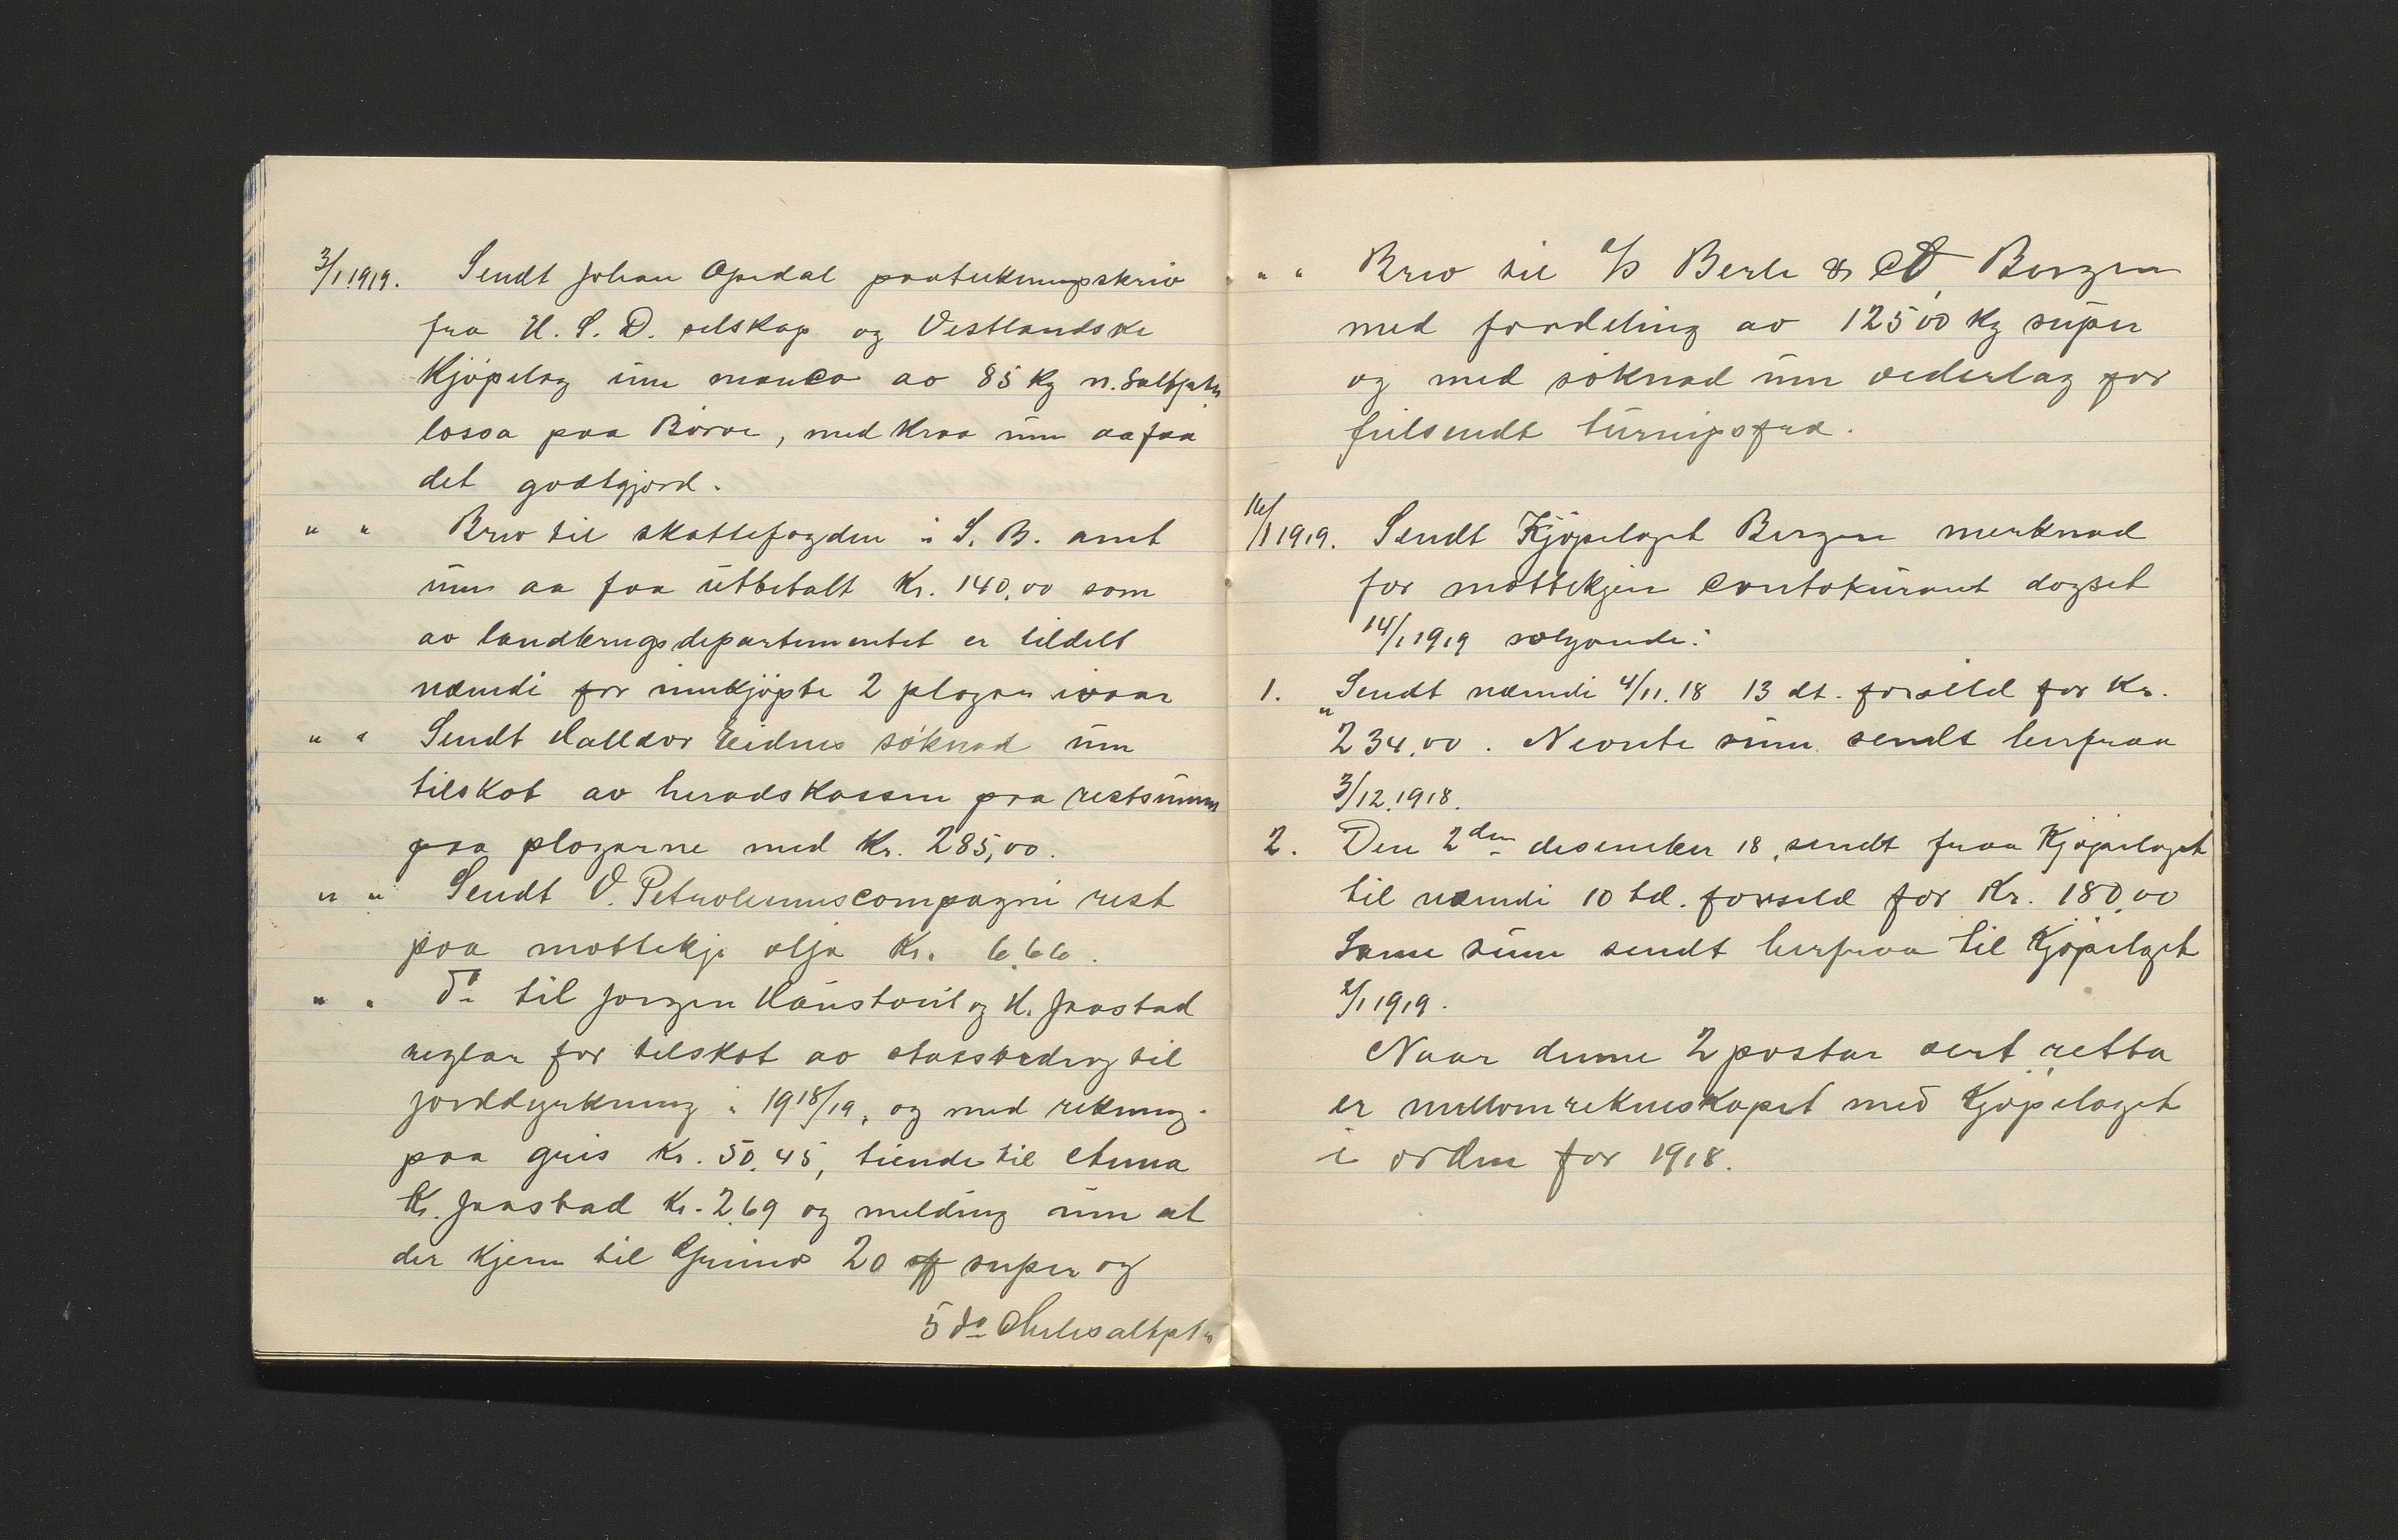 3/1 1919. Sendt Johan Opedal paatekningsskriv
fra H. S. D. selskap og Vestlandske
Kjøpelag um manco av 85 kg n. Saltpeter
lossa paa Børve, med krav um aa faa
det godtgjord.
" " Brev til skattefogden i S. B. amt
um aa faa utbetalt Kr. 140,00 som
av landbrugsdepartementet er tildelt
nemdi for innkjøpte 2 plogar ivaar
" " Sendt Halldor Eidnes søknad um
tilskot av heradskassen paa restsummen
paa plogarne med Kr. 285,00.
" " Sendt V. Petroleumscompagni rest
paa mottekje olja Kr. 6,66.
" " do til Jørgen Haustveit og H. Jaastad
reglar for tilskot av statsbidrag til
jorddyrkning i 1918/19, og med rekning
paa gris Kr. 50.45, tiende til Anna
K. Jaastad Kr. 2,69 og melding um at
der kjem til Grimo 20 sk super og
5 do Chilesaltpeter
" " Brev til A/S Berle & Co, Bergen
med fordeling av 12500 kg super
og med søknad um vederlag for
feilsendt turnipsfrø.
16/1 1919. Sendt Kjøpelaget Bergen merknad
for mottekjen Contokurant dagset
14/1 1919 sølgjande:
1. "Sendt nemdi 4/11. 18 13 dt. forsild for Kr.
234,00. Nevnte sum sendt herfraa
3/12. 1918.
2. Den 2den desember 18, sendt fraa Kjøpelaget
til nemdi 10 td. forsild for Kr. 180,00
Same sum sendt herfraa til Kjøpelaget
2/1 1919.
Naar denne 2 postar vert retta
er mellomrekneskapet med Kjøpelaget
i orden for 1918.